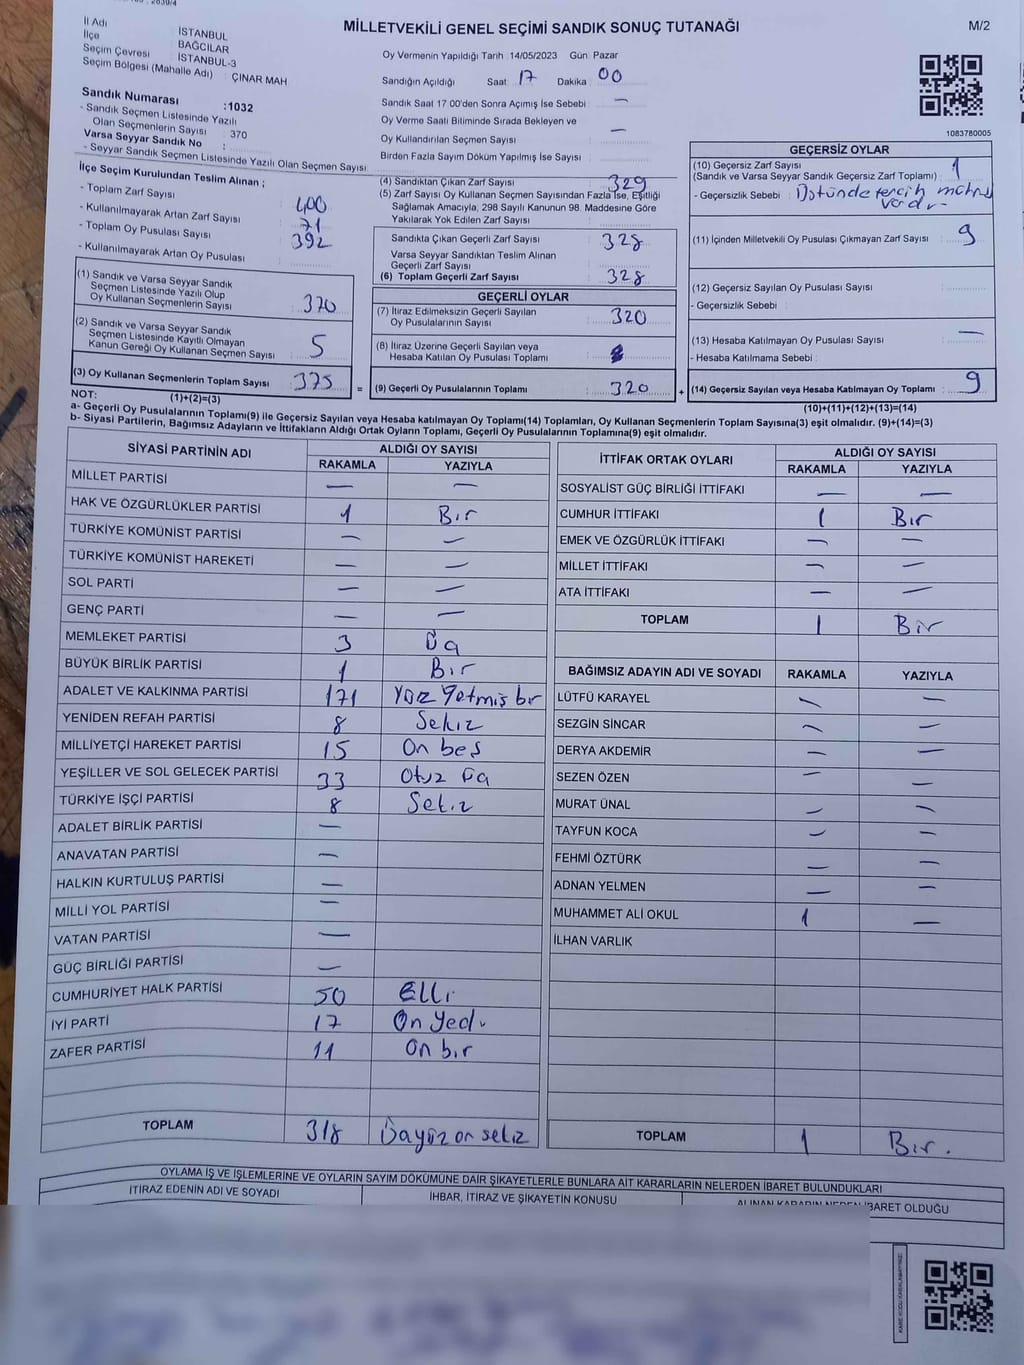 MİLLETVEKİLİ GENEL SEÇİMİ SANDIK SONUÇ TUTANAĞI
M/2
İl Adı İSTANBUL
İlçe BAĞCILAR
Seçim Çevresi İSTANBUL-3
Seçim Bölgesi (Mahalle Adı) : ÇINAR MAH
Sandık Numarası :1032
- Sandık Seçmen Listesinde Yazılı
Olan Seçmenlerin Sayısı : 370
Varsa Seyyar Sandık No :
- Seyyar Sandık Seçmen Listesinde Yazılı Olan Seçmen Sayısı
Oy Vermenin Yapıldığı Tarih :14/05/2023 Gün: Pazar
Sandığın Açıldığı Saat: 17 Dakika: 00
Sandık Saat 17 00'den Sonra Açımış İse Sebebi : —
Oy Verme Saati Bitiminde Sırada Bekleyen ve
Oy Kullandırılan Seçmen Sayısı : —
Birden Fazla Sayım Döküm Yapılmış İse Sayısı :
1083780005
İlçe Seçim Kurulundan Teslim Alınan ;
- Toplam Zarf Sayısı 400
- Kullanılmayarak Artan Zarf Sayısı : 71
- Toplam Oy Pusulası Sayısı 392
- Kullanılmayarak Artan Oy Pusulası
(1) Sandık ve Varsa Seyyar Sandık
Seçmen Listesinde Yazılı Olup
Oy Kullanan Seçmenlerin Sayısı : 370
(2) Sandık ve Varsa Seyyar Sandık
Seçmen Listesinde Kayıtlı Olmayan
Kanun Gereği Oy Kullanan Seçmen Sayısı : 5
(3) Oy Kullanan Seçmenlerin Toplam Sayısı : 375
(1)+(2)=(3)
(4) Sandıktan Çıkan Zarf Sayısı : 329
(5) Zarf Sayısı Oy Kullanan Seçmen Sayısından Fazla İse, Eşitliği
Sağlamak Amacıyla, 298 Sayılı Kanunun 98. Maddesine Göre
Yakılarak Yok Edilen Zarf Sayısı :
Sandıkta Çıkan Geçerli Zarf Sayısı : 328
Varsa Seyyar Sandıktan Teslim Alınan
Geçerli Zarf Sayısı :
(6) Toplam Geçerli Zarf Sayısı : 328
GEÇERLİ OYLAR
(7) İtiraz Edilmeksizin Geçerli Sayılan
Oy Pusulalarının Sayısı : 320
(8) İtiraz Üzerine Geçerli Sayılan veya
Hesaba Katılan Oy Pusulası Toplamı :
= (9) Geçerli Oy Pusulalarının Toplamı : 320 +
GEÇERSİZ OYLAR
(10) Geçersiz Zarf Sayısı
(Sandık ve Varsa Seyyar Sandık Geçersiz Zarf Toplamı) : 1
- Geçersizlik Sebebi : Üstünde tercih
vardı
(11) İçinden Milletvekili Oy Pusulası Çıkmayan Zarf Sayısı : 9
(12) Geçersiz Sayılan Oy Pusulası Sayısı :
- Geçersizlik Sebebi :
(13) Hesaba Katılmayan Oy Pusulası Sayısı : —
- Hesaba Katılmama Sebebi :
(14) Geçersiz Sayılan veya Hesaba Katılmayan Oy Toplamı : 9
(10)+(11)+(12)+(13)=(14)
NOT:
a- Geçerli Oy Pusulalarının Toplamı(9) ile Geçersiz Sayılan veya Hesaba katılmayan Oy Toplamı(14) Toplamları, Oy Kullanan Seçmenlerin Toplam Sayısına(3) eşit olmalıdır. (9)+(14)=(3)
b- Siyasi Partilerin, Bağımsız Adayların ve İttifakların Aldığı Ortak Oyların Toplamı, Geçerli Oy Pusulalarının Toplamına(9) eşit olmalıdır.
SİYASİ PARTİNİN ADI ALDIĞI OY SAYISI
RAKAMLA YAZIYLA
MİLLET PARTİSİ — —
HAK VE ÖZGÜRLÜKLER PARTİSİ 1 Bir
TÜRKİYE KOMÜNİST PARTİSİ — —
TÜRKİYE KOMÜNİST HAREKETİ — —
SOL PARTİ — —
GENÇ PARTİ — —
MEMLEKET PARTİSİ 3 Üç
BÜYÜK BİRLİK PARTİSİ 1 Bir
ADALET VE KALKINMA PARTİSİ 171 Yüz Yetmiş bir
YENİDEN REFAH PARTİSİ 8 Sekiz
MİLLİYETÇİ HAREKET PARTİSİ 15 On beş
YEŞİLLER VE SOL GELECEK PARTİSİ 33 Otuz Üç
TÜRKİYE İŞÇİ PARTİSİ 8 Sekiz
ADALET BİRLİK PARTİSİ —
ANAVATAN PARTİSİ —
HALKIN KURTULUŞ PARTİSİ —
MİLLİ YOL PARTİSİ —
VATAN PARTİSİ —
GÜÇ BİRLİĞİ PARTİSİ —
CUMHURİYET HALK PARTİSİ 50 Elli
İYİ PARTİ 17 On Yedi
ZAFER PARTİSİ 11 On bir
TOPLAM 318 Üçyüz on sekiz
İTTİFAK ORTAK OYLARI ALDIĞI OY SAYISI
RAKAMLA YAZIYLA
SOSYALİST GÜÇ BİRLİĞİ İTTİFAKI — —
CUMHUR İTTİFAKI 1 Bir
EMEK VE ÖZGÜRLÜK İTTİFAKI — —
MİLLET İTTİFAKI — —
ATA İTTİFAKI — —
TOPLAM 1 Bir
BAĞIMSIZ ADAYIN ADI VE SOYADI RAKAMLA YAZIYLA
LÜTFÜ KARAYEL — —
SEZGİN SİNCAR — —
DERYA AKDEMİR — —
SEZEN ÖZEN — —
MURAT ÜNAL — —
TAYFUN KOCA — —
FEHMİ ÖZTÜRK — —
ADNAN YELMEN — —
MUHAMMET ALİ OKUL 1 —
İLHAN VARLIK
TOPLAM 1 Bir.
OYLAMA İŞ VE İŞLEMLERİNE VE OYLARIN SAYIM DÖKÜMÜNE DAİR ŞİKAYETLERLE BUNLARA AİT KARARLARIN NELERDEN İBARET BULUNDUKLARI
İTİRAZ EDENİN ADI VE SOYADI İHBAR, İTİRAZ VE ŞİKAYETİN KONUSU ALINAN KARARIN NEDEN İBARET OLDUĞU